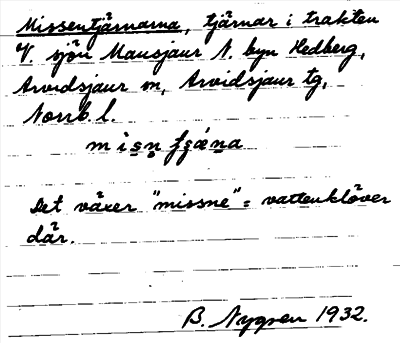 Missentjärnarna, tjärnar i trakten
V. sjön Mausjaur N. byn Hedberg,
Arvidsjaur sn, Arvidsjaur tg,
Norrb. l.
Det växer "missne" = vattenklöver
där.
B. Nygren 1932.